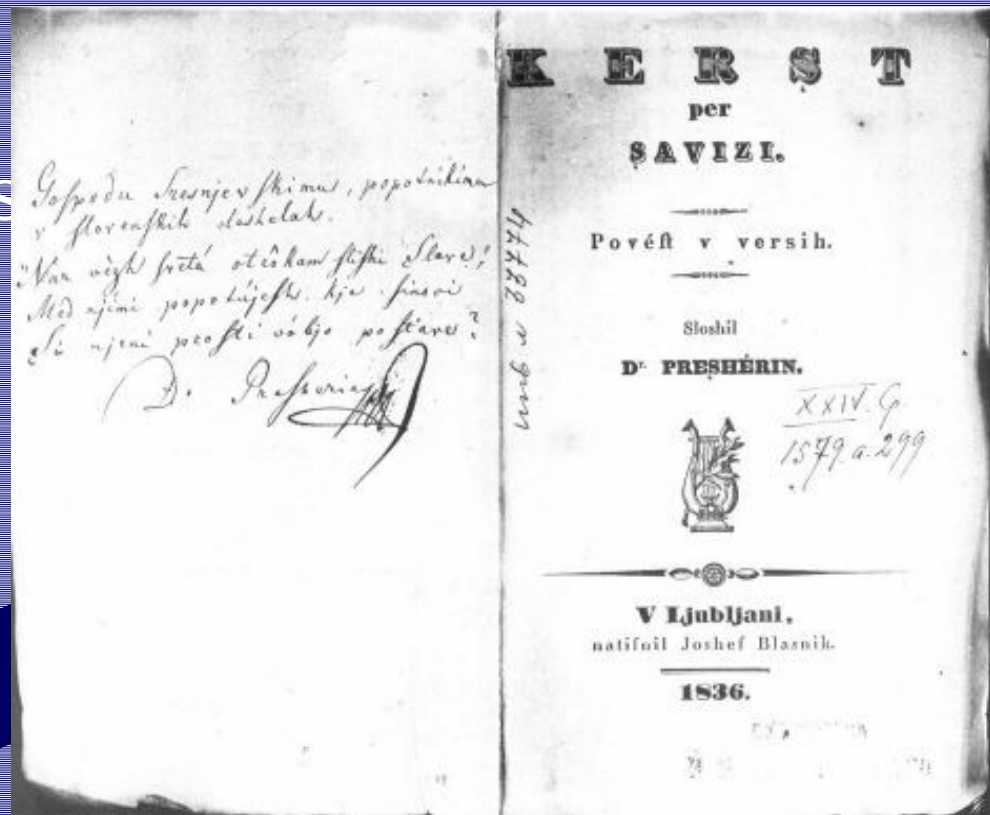 Goſpodu Sresnjevſkimu,
v ſlovenſkih deshelah.
"Nar vézh ſvetá otrókam ſliſhi Slave!
Med njimi popotújeſh, kje ſinovi
Si njeni proſti vóljo poſtave?
D. Preſherin
K E R Ṣ T
per
ṢAVIZI.
Povéſt v versih.
Sloshil
Dr. PREṢHÉRIN.
XXIV. G.
1579.a.299
V Ljubljani,
natiſnil Joshef Blasnik.
1836.